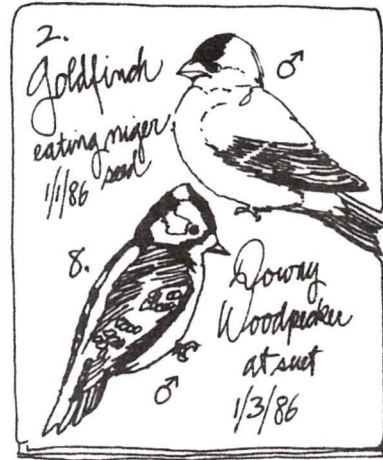 2.
Goldfinch
♂
eating niger
seed
1/1/86
8.
Downy
Woodpecker
at suet
1/3/86
♂